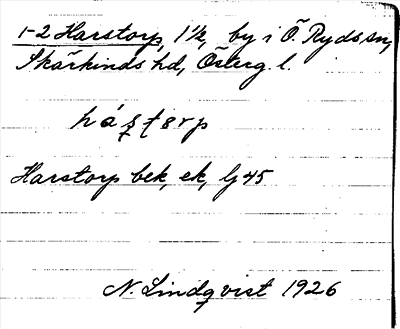 1-2 Harstorp, 1½, by i Ö. Ryds sn,
Skärkinds hd, Österg. l.
Harstorp bek, ek, lj 45
N. Lindqvist 1926